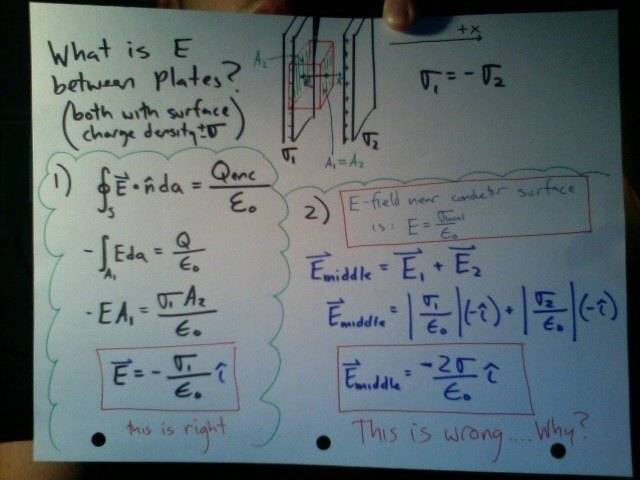 What is E
between plates?
(both with surface
charge density ±σ)
A₂
+x
σ₁ = -σ₂
σ₁
σ₂
A₁=A₂
1) ∮_S E⃗ • n̂ da = Qenc/ε₀
-∫_A₁ E da = Q/ε₀
-EA₁ = σ₁A₂/ε₀
E⃗ = -σ₁/ε₀ î
this is right
2) E-field near conductor surface
is: E = σlocal/ε₀
E⃗middle = E⃗₁ + E⃗₂
E⃗middle = |σ₁/ε₀|(-î) + |σ₂/ε₀|(-î)
E⃗middle = -2σ/ε₀ î
This is wrong.... Why?